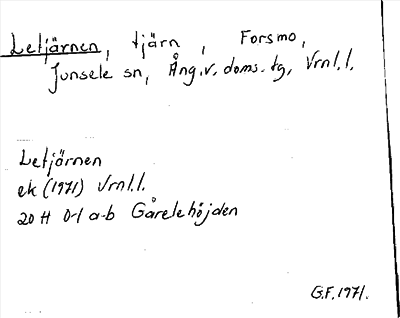 Letjärnen, tjärn, Forsmo,
Junsele sn, Ång.v. doms. tg, Vrnl. l.
Letjärnen
ek (1971) Vrnl. l.
20 H 0-1 a-b Gårelehöjden
G.F. 1971.